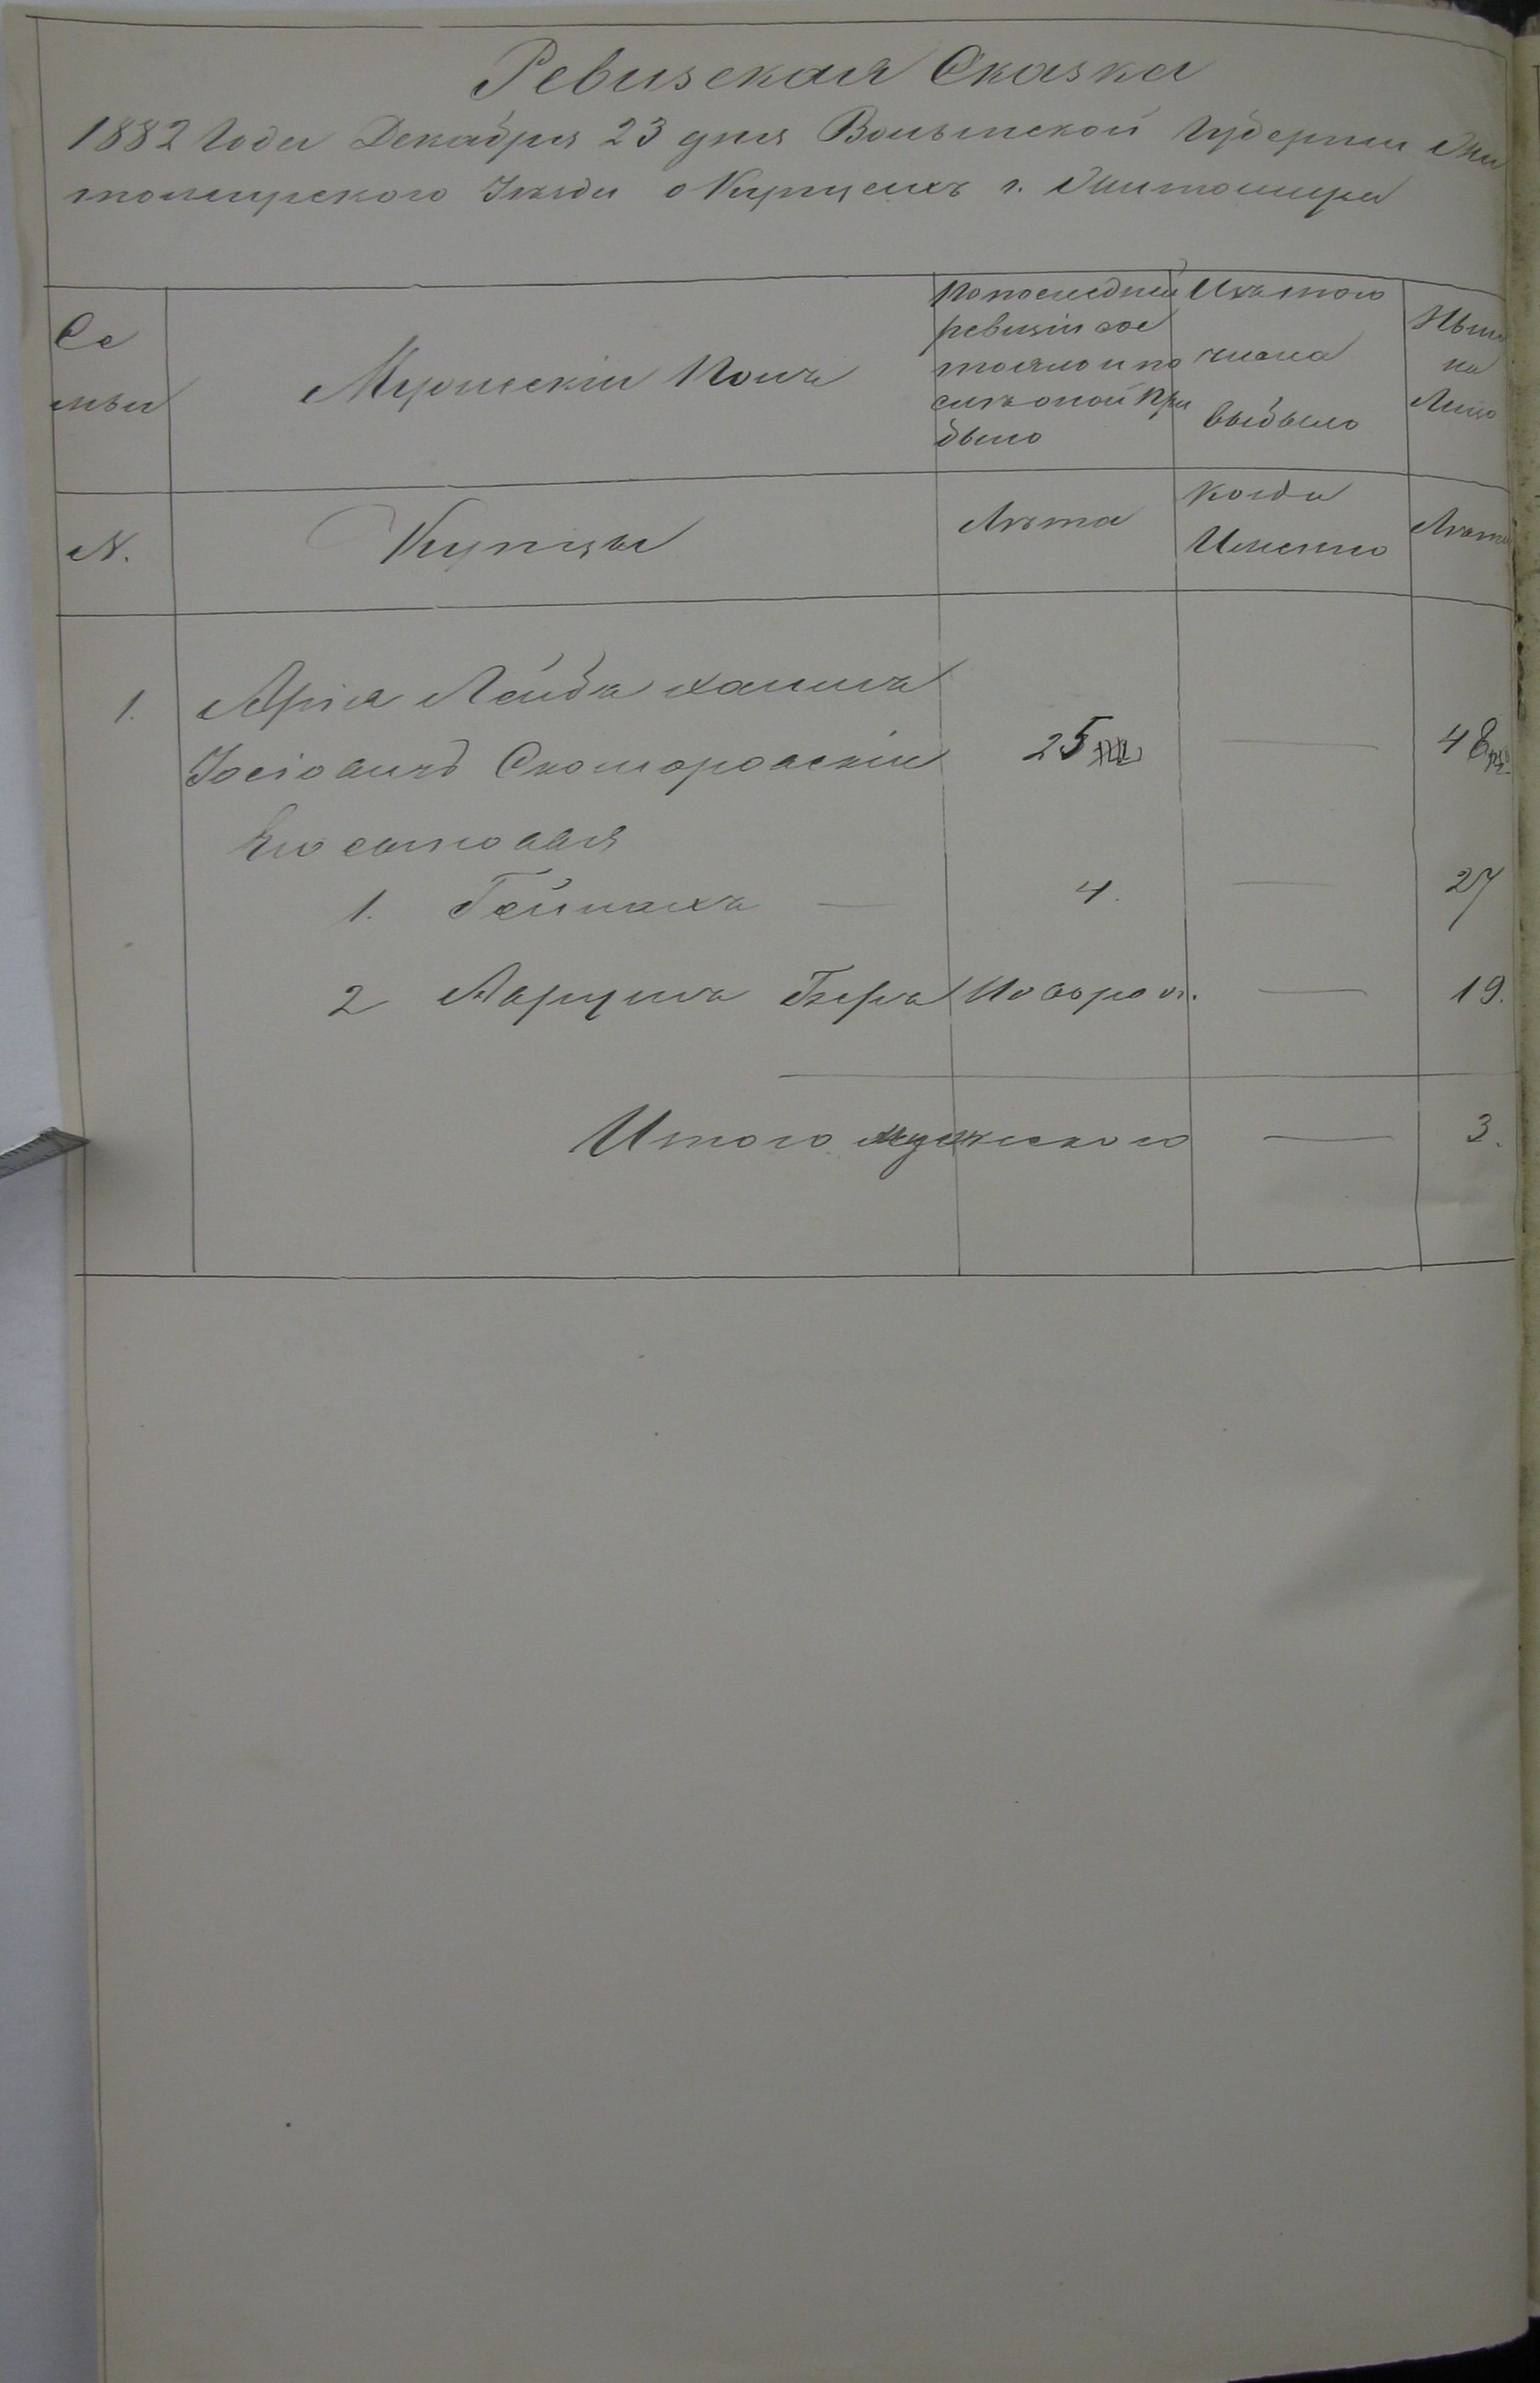 Ревизская Сказка
1882 Года Декабря 23 дня Волынской Губернии Жи
томирского Уезда о Купцахъ г. Житомира
Се
мьи
Мужескій Полъ
По последней
ревизіи сос
тояло и по
слѣ оной При
было
Изъ того
числа
выбыло
Ныне
на
Лицо
N.
Купцы
Лѣта
Когда
Именно
Лѣта
1.
Арія Лейба
Скоморовскій
25
48
Его сыновья
1. 4. 27
2 Беръ Новорож. 19.
Итого мужеского 3.